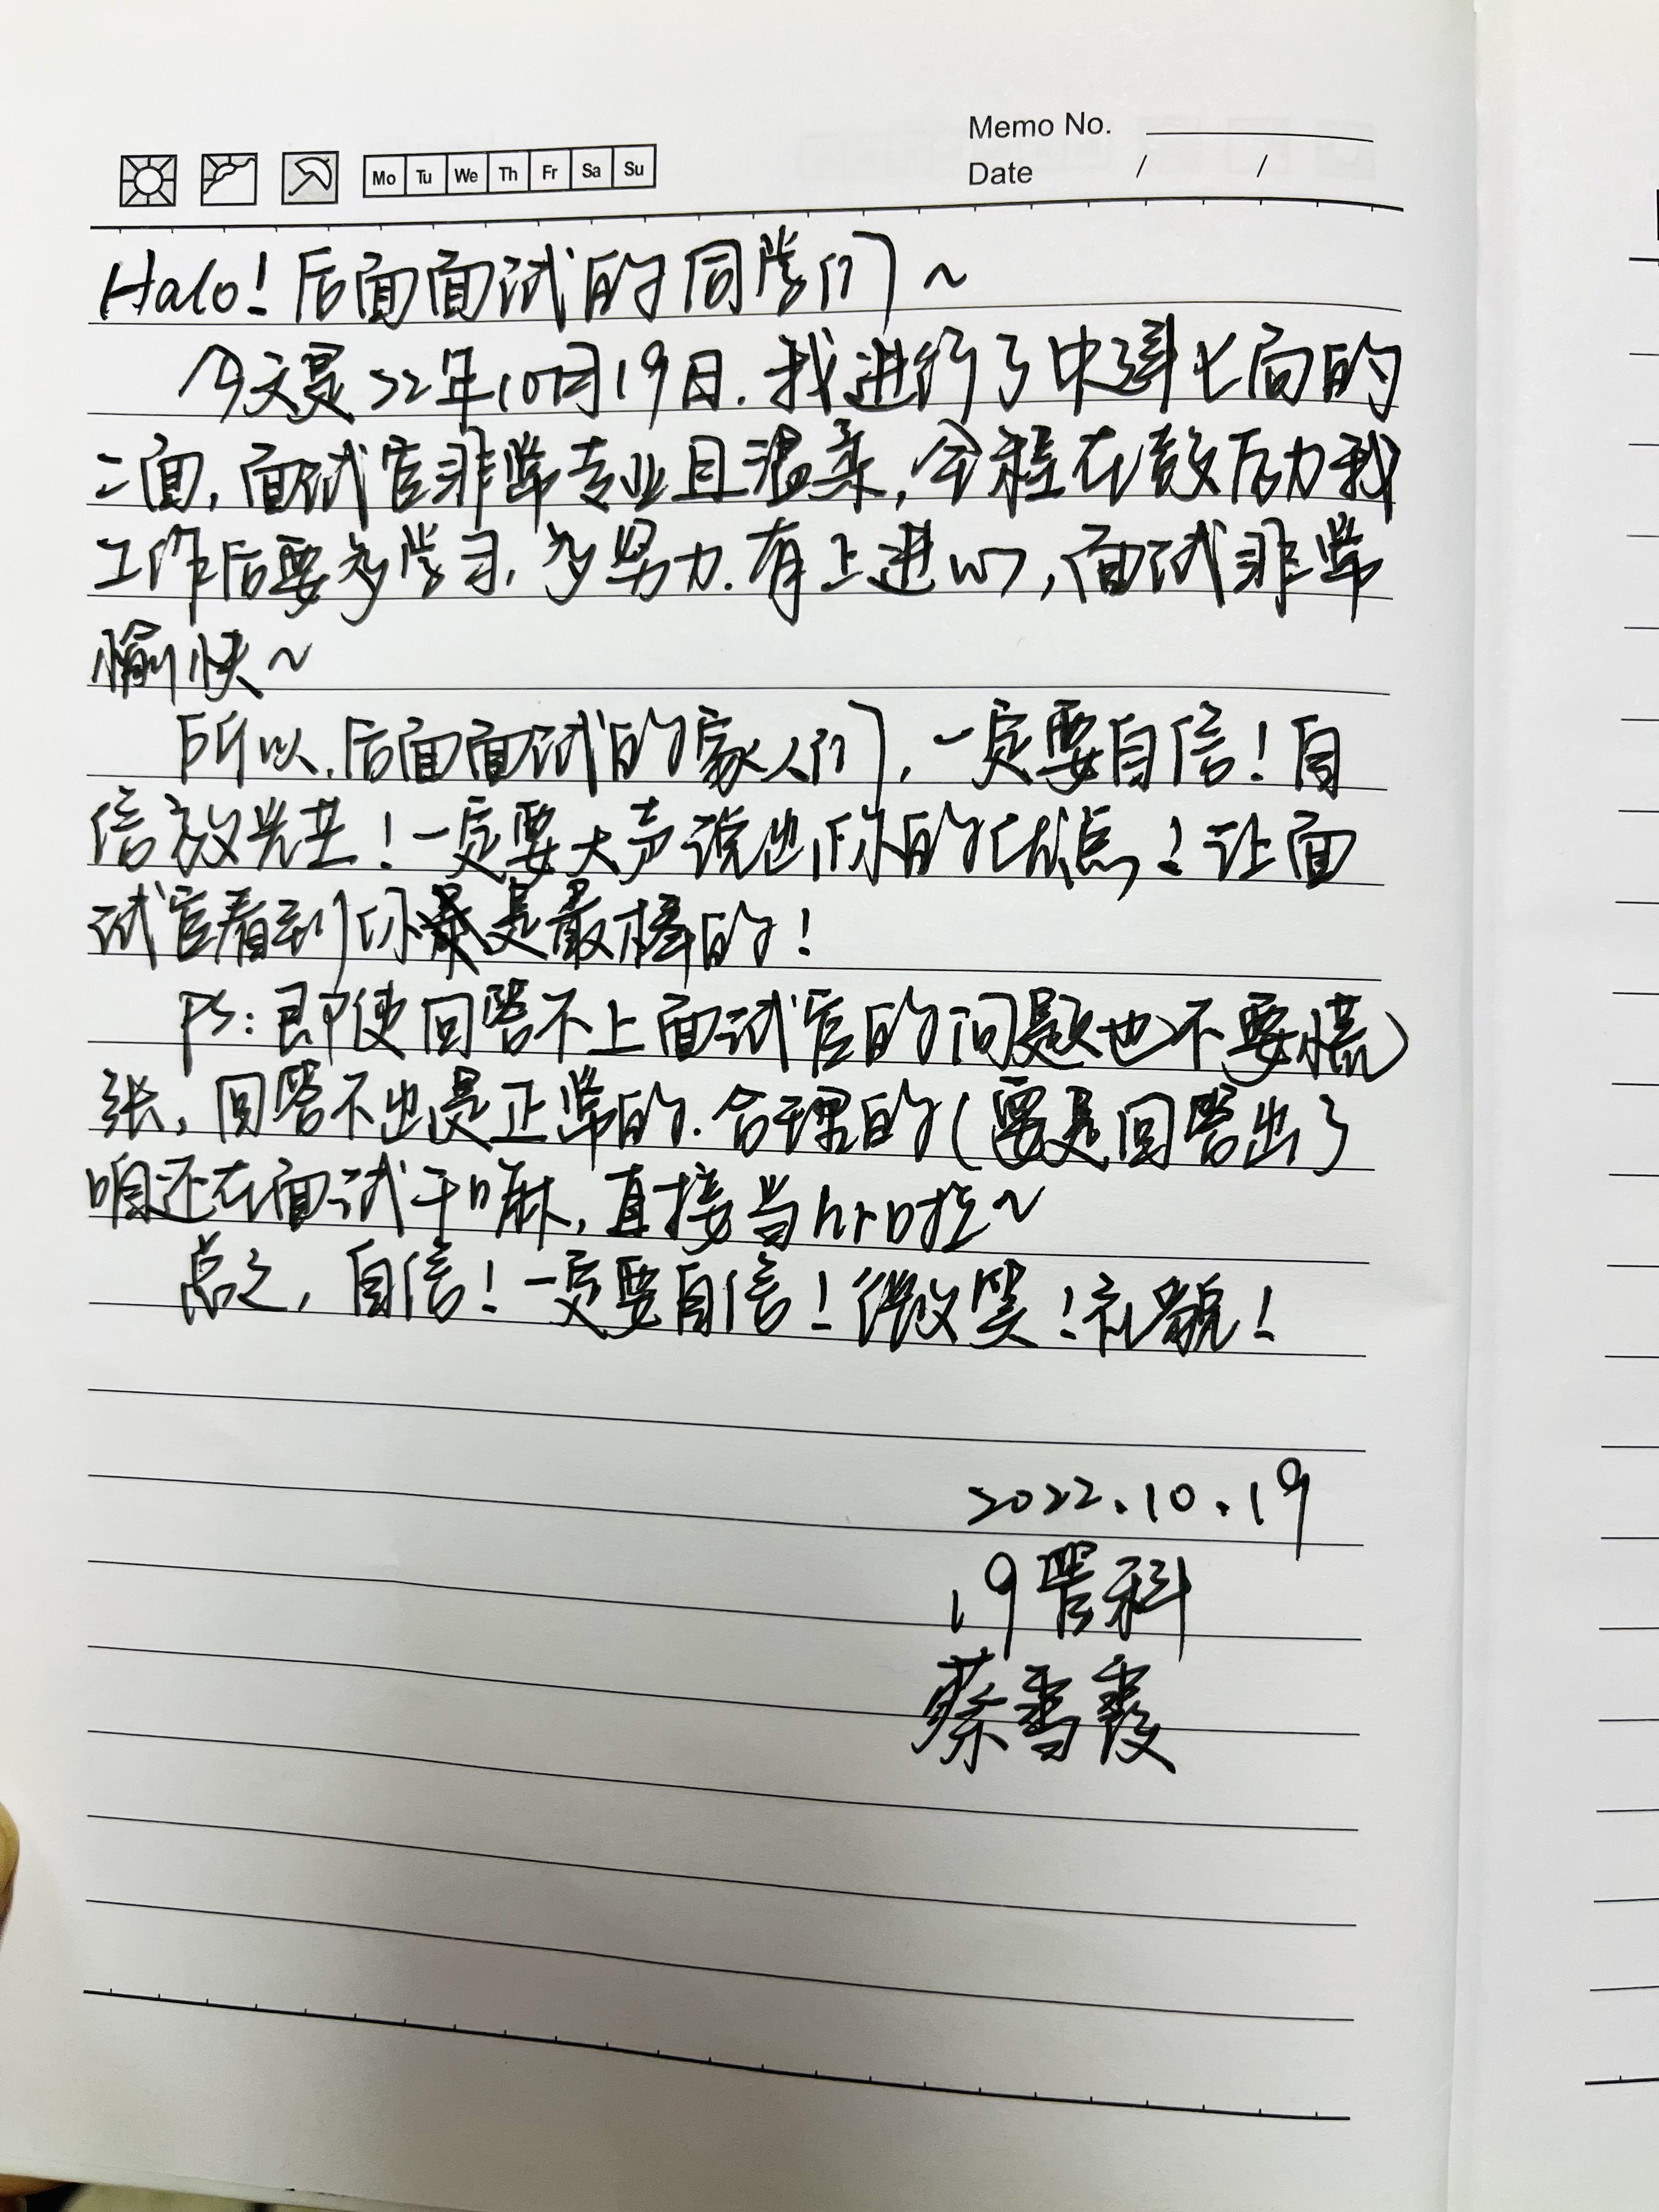 Memo No.
Mo Tu We Th Fr Sa Su
Date / /
Halo！后面面试的同学们～
今天是22年10月19日.我进行了中建七局的
二面，面试官非常专业且温柔，全程在鼓励我
工作后要多学习，多努力.有上进心，面试非常
愉快～
所以，后面面试的家人们，一定要自信！自
信放光芒！一定要大声说出你的优点！让面
试官看到你是最棒的！
PS：即使回答不上面试官的问题也不要慌
张，回答不出是正常的.合理的（要是回答出了
咱还在面试干嘛，直接当hr吖～
总之，自信！一定要自信！微笑！礼貌！
2022.10.19
19管科
蔡雪霞